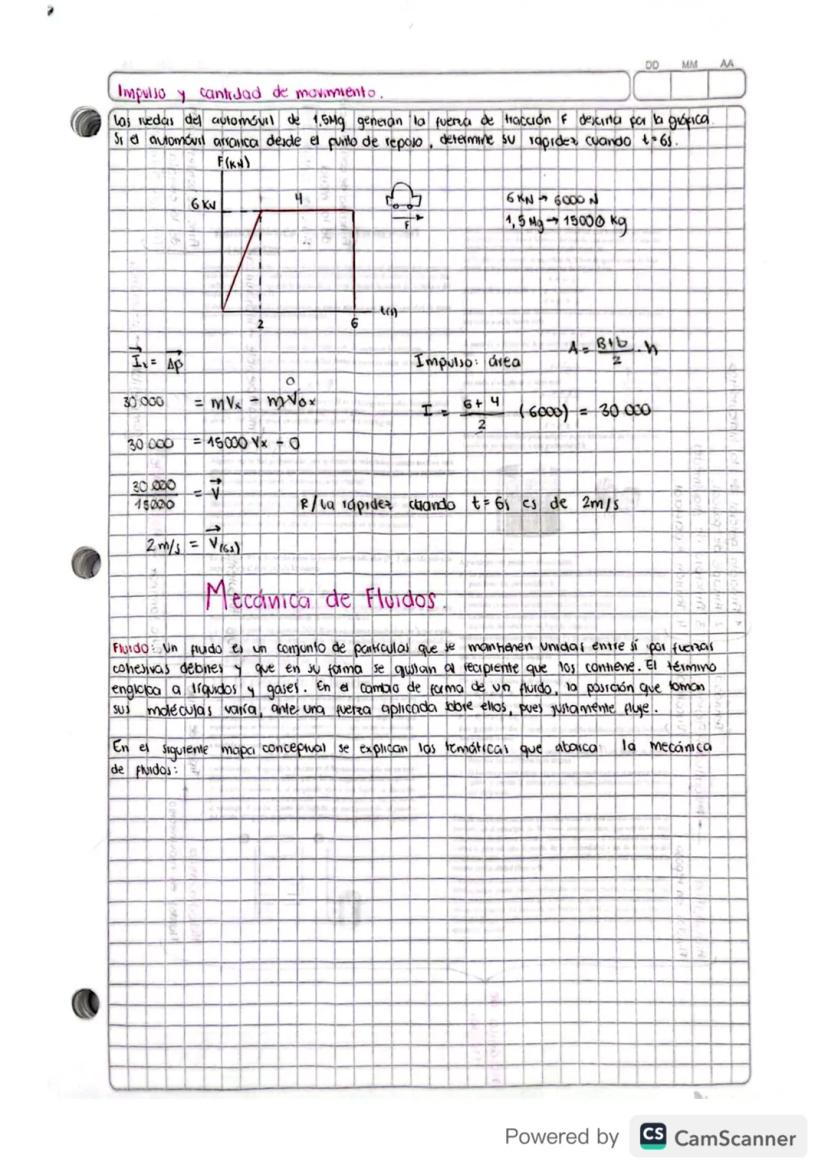 DD MM AA
Impulso y cantidad de movimiento.
Las ruedas del automóvil de 1,5Mg generan la fuerza de tracción F descrita por la gráfica.
Si el automóvil arranca desde el punto de reposo, determine su rapidez cuando t=6s.
F(KN)
6 KN
4
F
6 KN → 6000 N
1,5 Mg → 15000 kg
t(s)
2 6
I⃗x = Δp⃗
Impulso: área
A = B+b/2 · h
0
30 000 = mVx - mVox
I = 6+4/2 (6000) = 30 000
30 000 = 15000 Vx - 0
30 000/15000 = V⃗
R/ La rápidez cuando t=6s es de 2m/s
2m/s = V⃗(6s)
Mecánica de Fluidos.
Fluido: Un fluido es un conjunto de partículas que se mantienen unidas entre sí por fuerzas
cohesivas débiles y que en su forma se ajustan al recipiente que los contiene. El término
engloba a líquidos y gases. En el cambio de forma de un fluido, la posición que toman
sus moléculas varía, ante una fuerza aplicada sobre ellos, pues justamente fluye.
En el siguiente mapa conceptual se explican las temáticas que abarca la mecánica
de fluidos:
Powered by CS CamScanner